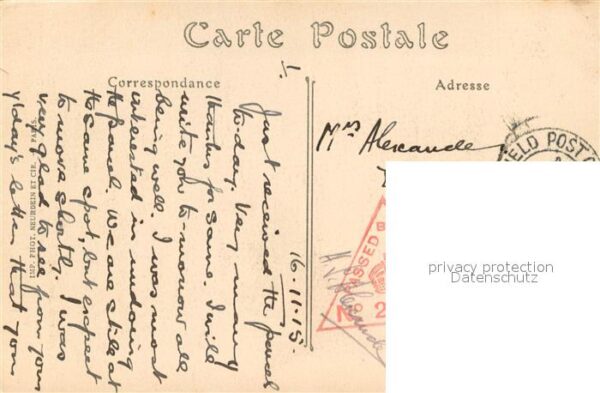 Carte Postale
Correspondance
Adresse
I.
16-11-15.
Just received the parcel
to day. Very many
thanks for same. I will
write you to-morrow all
being well. I was most
interested in undoing
the parcel. We are still at
the same spot, but expect
to move shortly. I was
very glad to see from your
y'day's letter that you
Mrs Alexander,
FIELD POST O
PASSED B
No 2
H. Alexander
IMP. PHOT. NEURDEIN ET CIE. PARIS.
privacy protection
Datenschutz